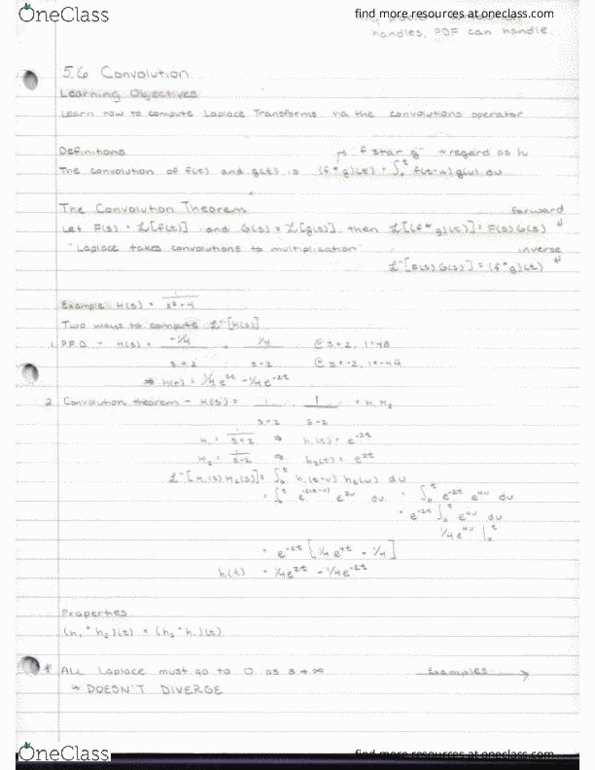 OneClass
find more resources at oneclass.com
handles, PDF can handle.
5.6 Convolution
Learning Objectives
Learn how to compute Laplace Transforms via the convolutions operator
Definitions
"f star g" → regard as h
The convolution of f(t) and g(t) is (f * g)(t) = ∫₀ᵗ f(t-u) g(u) du
The Convolution Theorem
forward
Let F(s) = ℒ[f(t)] and G(s) = ℒ[g(t)], then ℒ[(f * g)(t)] = F(s)G(s)
"Laplace takes convolutions to multiplication"
inverse
ℒ⁻¹[F(s)G(s)] = (f * g)(t)
Example H(s) = 1/(s²-4)
Two ways to compute ℒ⁻¹[H(s)]
1. P.F.D - H(s) = -1/4 1/4 @ s=2, 1=4B
s+2 s-2 @ s=-2, 1=-4A
⇒ h(t) = 1/4 e²ᵗ - 1/4 e⁻²ᵗ
2. Convolution theorem - H(s) = 1 1 = H₁ H₂
s+2 s-2
H₁ = 1/(s+2) ⇒ h₁(t) = e⁻²ᵗ
H₂ = 1/(s-2) ⇒ h₂(t) = e²ᵗ
ℒ⁻¹[H₁(s) H₂(s)] = ∫₀ᵗ h₁(t-u) h₂(u) du
= ∫₀ᵗ e^-2(t-u) e^2u du = ∫₀ᵗ e^-2t e^4u du
= e^-2t ∫₀ᵗ e^4u du
1/4 e^4u |₀ᵗ
= e^-2t [1/4 e^4t - 1/4]
h(t) = 1/4 e^2t - 1/4 e^-2t
Properties
(h₁ * h₂)(t) = (h₂ * h₁)(t)
* ALL Laplace must go to 0 as s → ∞
Examples →
→ DOESN'T DIVERGE
OneClass
find more resources at oneclass.com